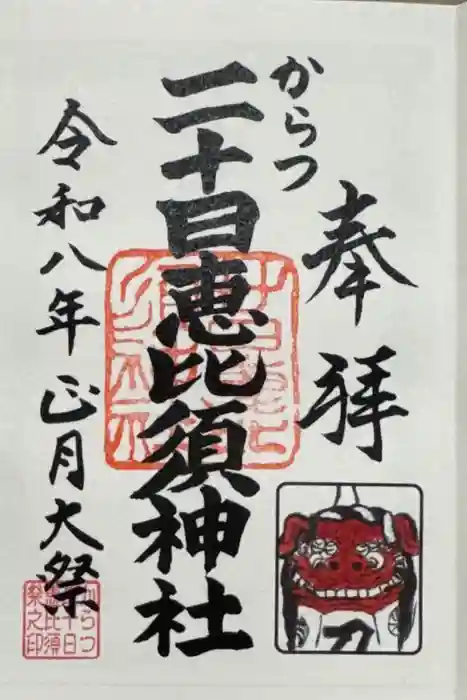 奉拝
からつ
二十日恵比須神社
令和八年正月大祭
からつ
二十日
恵比須
祭之印